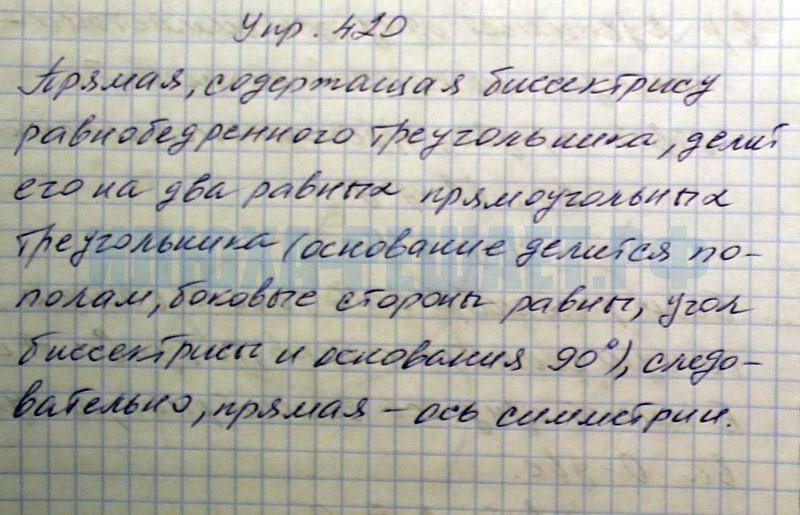 Упр. 420
Прямая, содержащая биссектрису
равнобедренного треугольника, делит
его на два равных прямоугольных
треугольника (основание делится по-
полам, боковые стороны равны, угол
биссектрисы и основания 90°), следо-
вательно, прямая – ось симметрии.